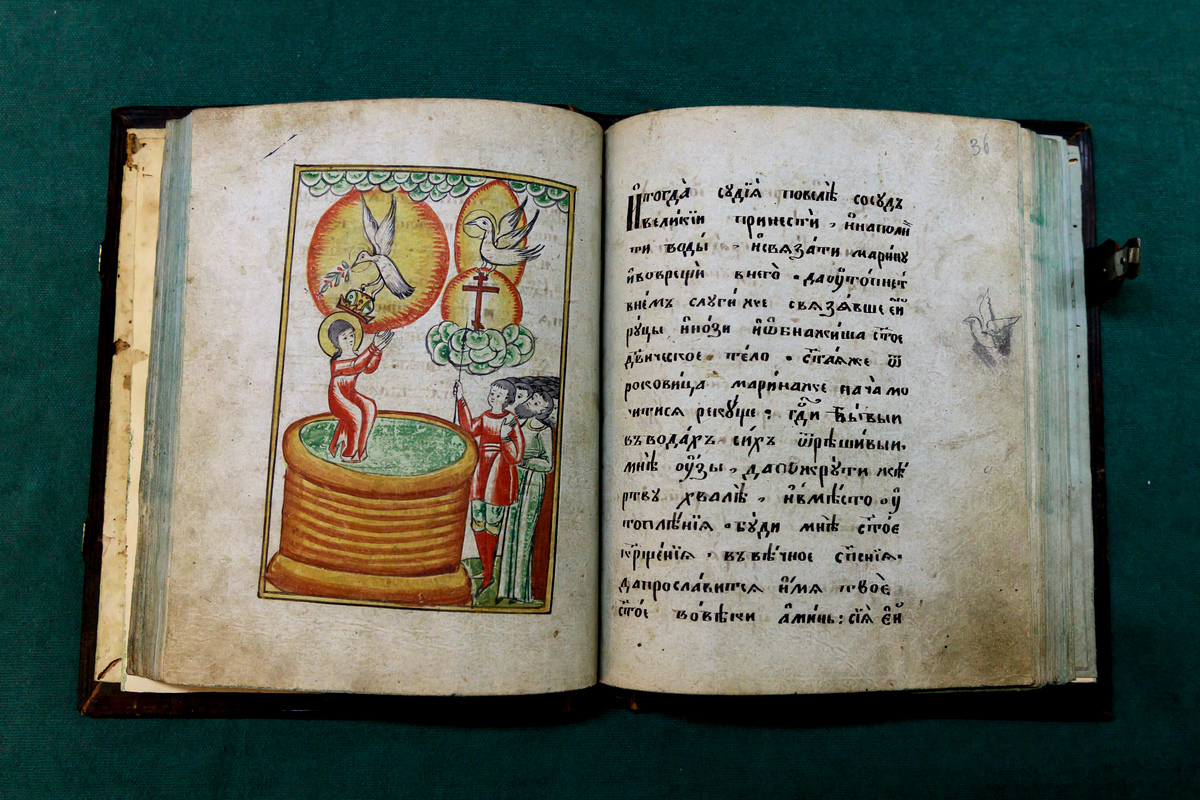 36
И҆тогда̀ судїѧ̀ повелѣ̀ сосудъ
великїи принестѝ, и҆наполн
ти воды̀, и҆свѧза́ти марину
и҆воврещѝ внего̀. даѹ҆топнет
вне́мъ слуги́ же свѧза́вше ей
ру́цы и҆но́зи и҆ѡбнажи́ша ст҃ое
дѣ́ическое те́ло. ст҃а́ѧже ѿ
роковица марина́же нача мо
литисѧ реку́ще; гд҃и бы́выи
въвода́хъ си́хъ ѿрѣши́выи,
мнѣ̀ ѹ҆́зы, дапожру́ти же́
ртву хвалѣ̀, и҆вмѣ́сто ѹ҆
топле́нїѧ. бу́ди мнѣ̀ ст҃о́е
кр҃ще́нїѧ. въвѣ́чное сп҃снїѧ.
дапросла́витсѧ и҆́мѧ твоѐ
ст҃о́е вовѣ́ки а҆ми́нь: сїѧ̀ є҆й